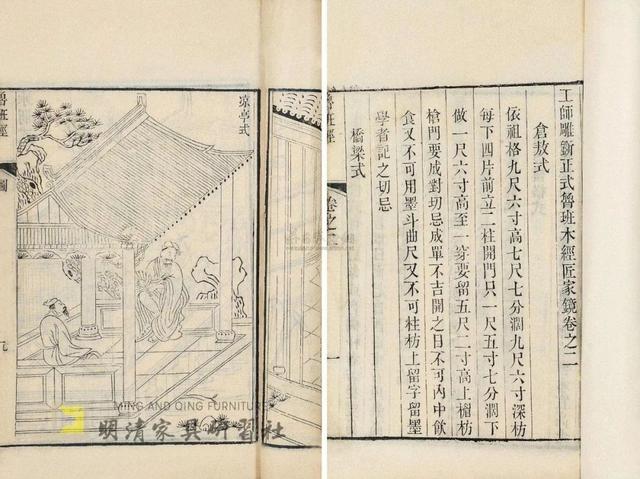 工師雕斲正式魯班木經匠家鏡卷之二
倉敖式
依祖格九尺六寸高七尺七分濶九尺六寸深枋
每下四片前立二柱開門只一尺五寸七分濶下
做一尺六寸高至一穿要留五尺二寸高上楣枋
槍門要成對切忌成單不吉開之日不可內中飲
食又不可用墨斗曲尺又不可柱枋上留字留墨
學者記之切忌
橋梁式
魯班經
卷之二
一
涼亭式
魯班經
圖
九
MING AND QING FURNITURE
明清家具研習社